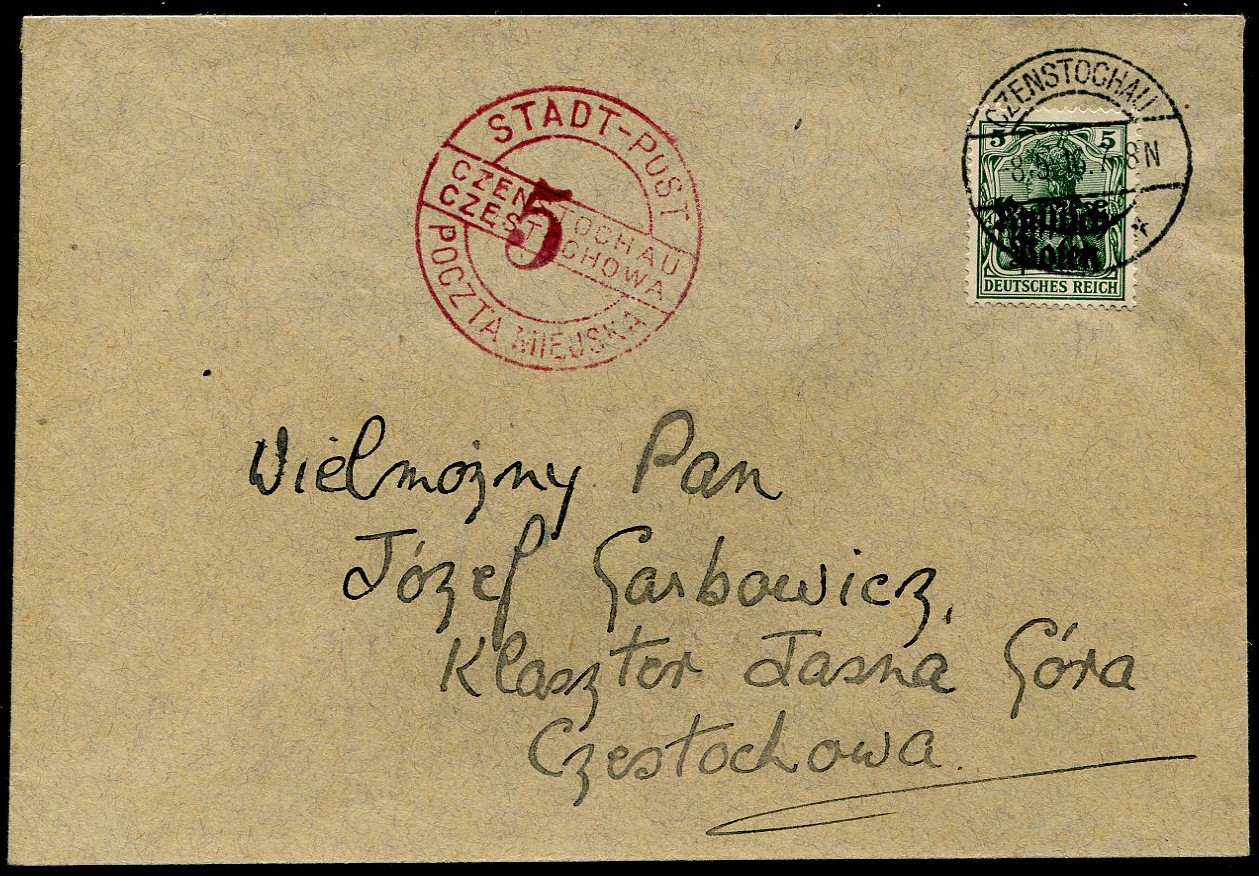 STADT-POST
CZENSTOCHAU
CZĘSTOCHOWA
5
POCZTA MIEJSKA
CZENSTOCHAU
5 5
8N
*
Russisch
Polen
DEUTSCHES REICH
Wielmożny Pan
Józef Garbowicz,
Klasztor Jasna Góra
Czestochowa.